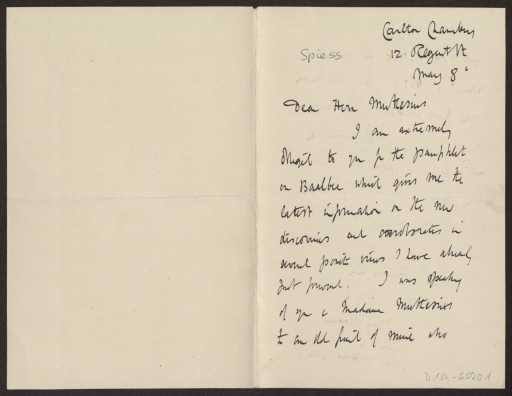 Carlton Chambers
12 Regent St
May 8
Spiess
Dear Herr Muthesius
I am extremely
obliged to you for the pamphlet
on Baalbec which gives me the
latest information on the new
discoveries and corroborates in
several points views I have already
put forward. I was speaking
of you & Madame Muthesius
to an old friend of mine who